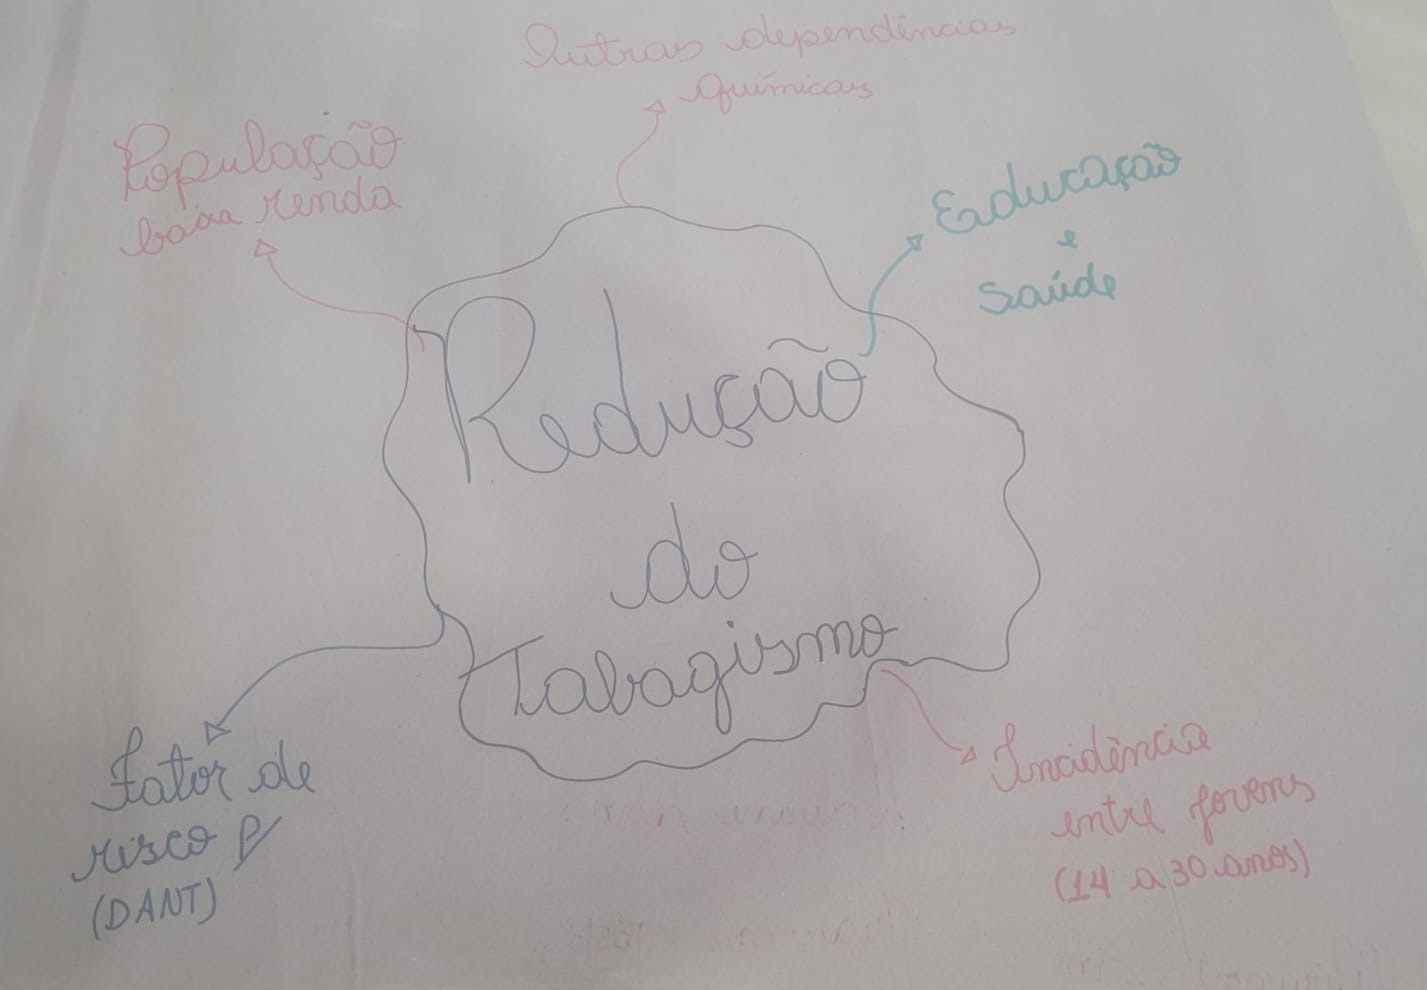 Outras dependências
químicas
População
baixa renda
Educação
e
Saúde
Redução
do
Tabagismo
Fator de
risco p/
(DANT)
Incidência
entre jovens
(14 a 30 anos)